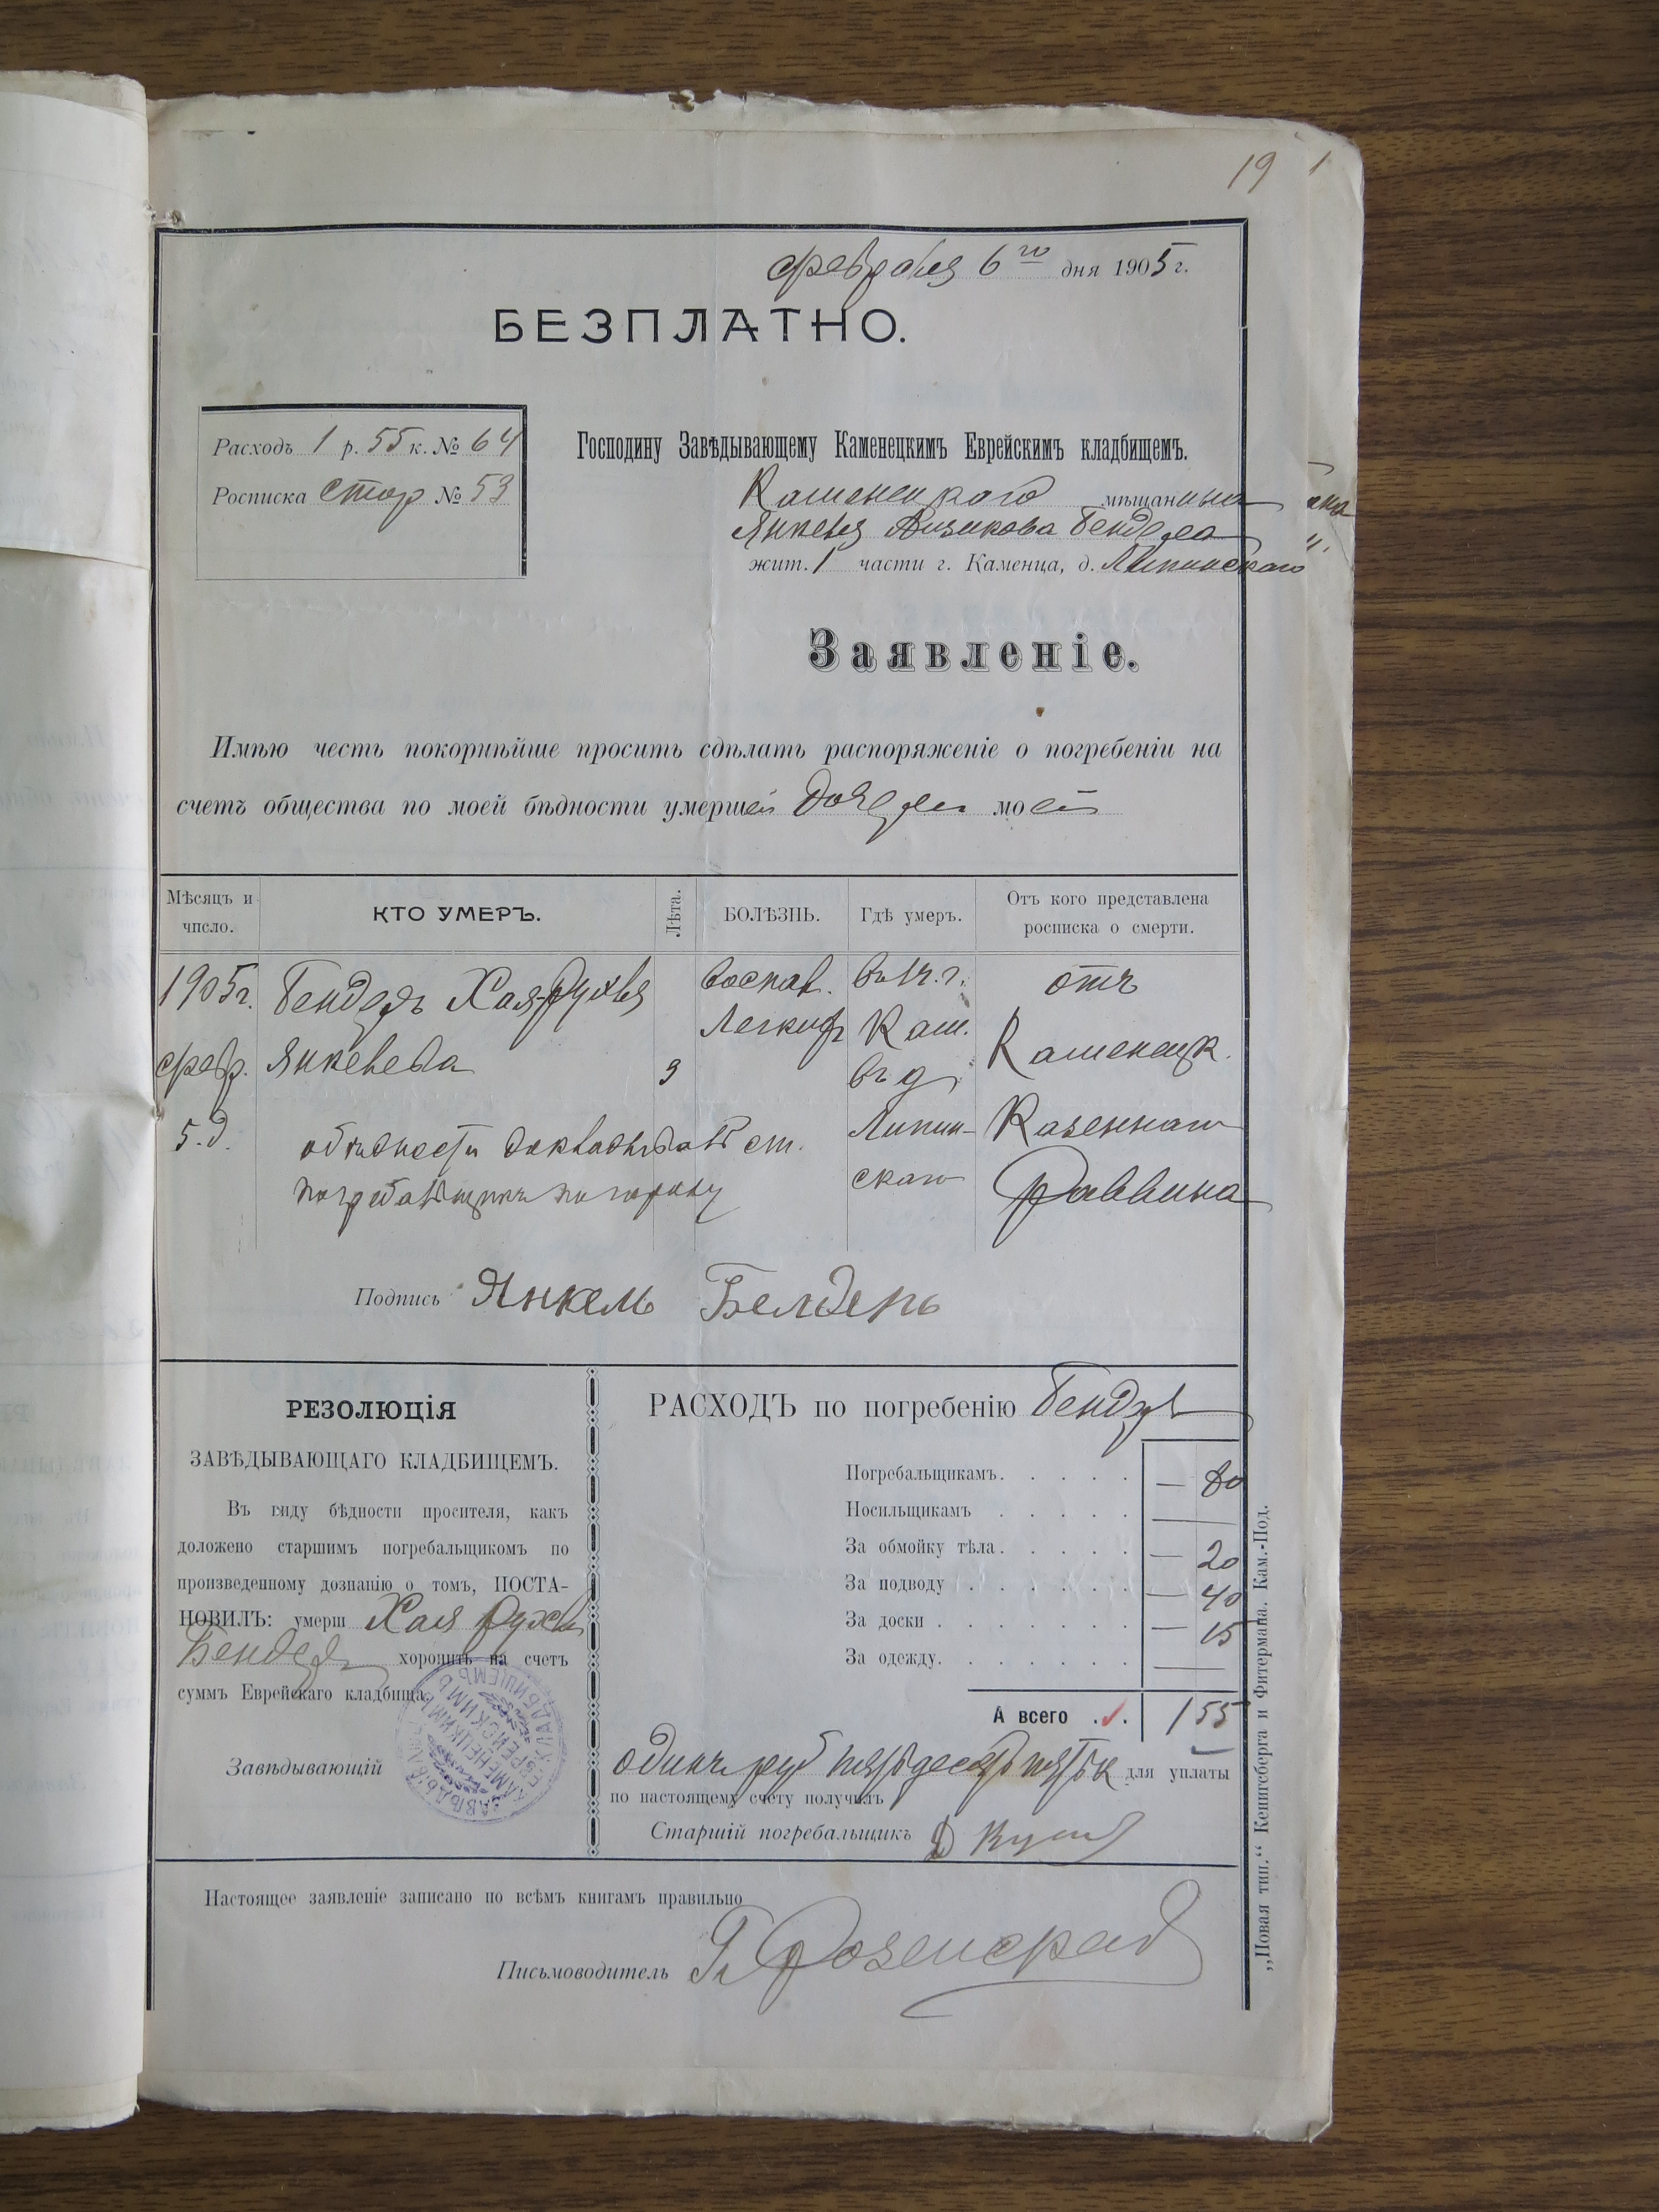 19
февраля 6го дня 1905 г.
БЕЗПЛАТНО.
Расходъ 1 р. 55 к. № 64
Росписка стор № 53
Господину Завѣдывающему Каменецкимъ Еврейскимъ кладбищемъ.
Каменецкого мѣщанина
Янкеля Айзикова Бендера
жит. 1 части г. Каменца, д. Липинскаго
Заявленіе.
Имѣю честь покорнѣйше просить сдѣлать распоряженіе о погребеніи на
счетъ общества по моей бѣдности умершей дочери моей
Мѣсяцъ и число.
КТО УМЕРЪ.
Лѣта.
БОЛѢЗНЬ.
Гдѣ умеръ.
Отъ кого представлена росписка о смерти.
1905 г. февр. 5. д.
Бендеръ Хая-Рухля Янкелева
3
воспал. Легкихъ
въ 1 ч. г. Кам. въ д. Липинскаго
отъ Каменецк. Казеннаго Раввина
о бѣдности докладываетъ ст.
погребальщикъ по городу
Подпись Янкель Бендеръ
РЕЗОЛЮЦІЯ
ЗАВѢДЫВАЮЩАГО КЛАДБИЩЕМЪ.
Въ виду бѣдности просителя, какъ
доложено старшимъ погребальщикомъ по
произведенному дознанію о томъ, ПОСТА-
НОВИЛЪ: умерш Хая Рухля
Бендеръ хоронить на счетъ
суммъ Еврейскаго кладбища.
Завѣдывающій
ЗАВѢДЫВ
КАМЕНЕЦКИМЪ
ЕВРЕЙСКИМЪ
КЛАДБИЩЕМЪ
РАСХОДЪ по погребенію Бендеръ
Погребальщикамъ. — 80
Носильщикамъ —
За обмойку тѣла. — 20
За подводу — 40
За доски — 15
За одежду. —
А всего 1 55
одинъ руб пятьдесятъ пять к для уплаты
по настоящему счету получилъ
Старшій погребальщикъ
Настоящее заявленіе записано по всѣмъ книгамъ правильно
Письмоводитель
„Новая тип.“ Кенигсберга и Фитермана. Кам.-Под.